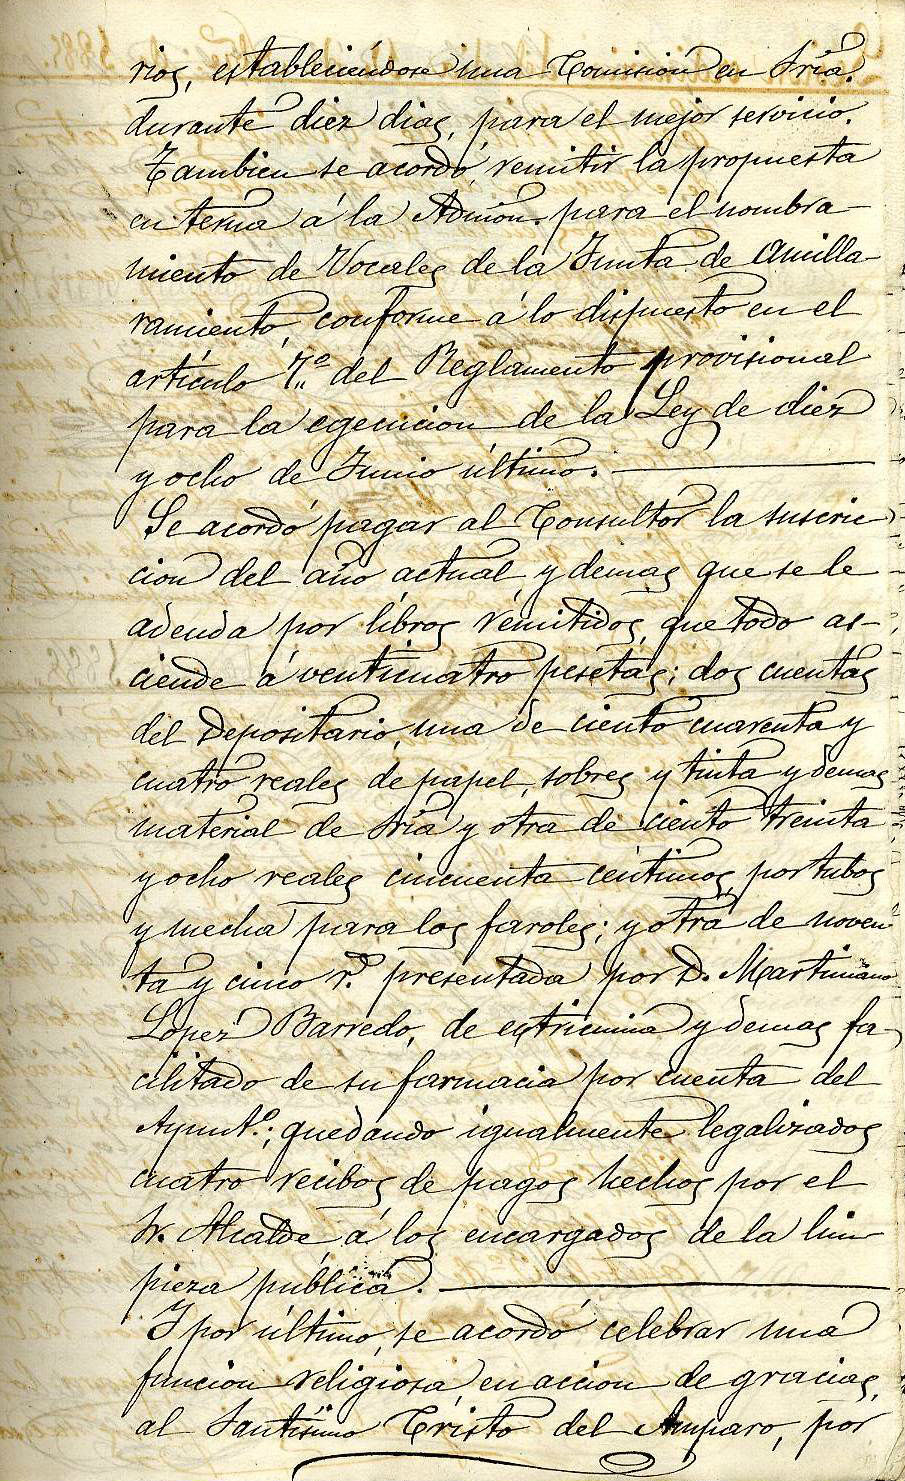 rios, estableciéndose una Comision en Sría.
durante diez dias, para el mejor servicio.
Tambien se acordó remitir la propuesta
en terna á la Admón. para el nombra-
miento de Vocales de la Junta de Amilla-
ramiento, conforme á lo dispuesto en el
artículo 7.º del Reglamento provisional
para la egecucion de la Ley de diez
y ocho de Junio último.
Se acordó pagar al Consultor la suscri-
cion del año actual y demas que se le
adeuda por libros remitidos, que todo as-
ciende á venticuatro pesetas; dos cuentas
del Depositario, una de ciento cuarenta y
cuatro reales de papel, sobres y tinta y demas
material de Sría y otra de ciento treinta
y ocho reales cincuenta céntimos, por tubos
y mecha para los faroles; y otra de noven-
ta y cinco r.s presentada por D. Martiniano
Lopez Barredo, de estricnina y demas fa-
cilitado de su farmacia por cuenta del
Ayunt.º; quedando igualmente legalizados
cuatro recibos de pagos hechos por el
Sr. Alcalde á los encargados de la lim-
pieza pública.
Y por último, se acordó celebrar una
funcion religiosa en accion de gracias,
al Santísimo Cristo del Amparo, por